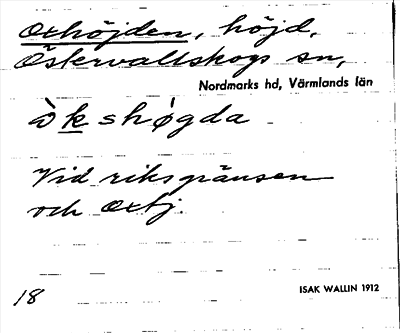 Oxhöjden, höjd,
Östervallskogs sn,
Nordmarks hd, Värmlands län
ò̀kshøgda
Vid riksgränsen
och Oxtj.
18
ISAK WALLIN 1912